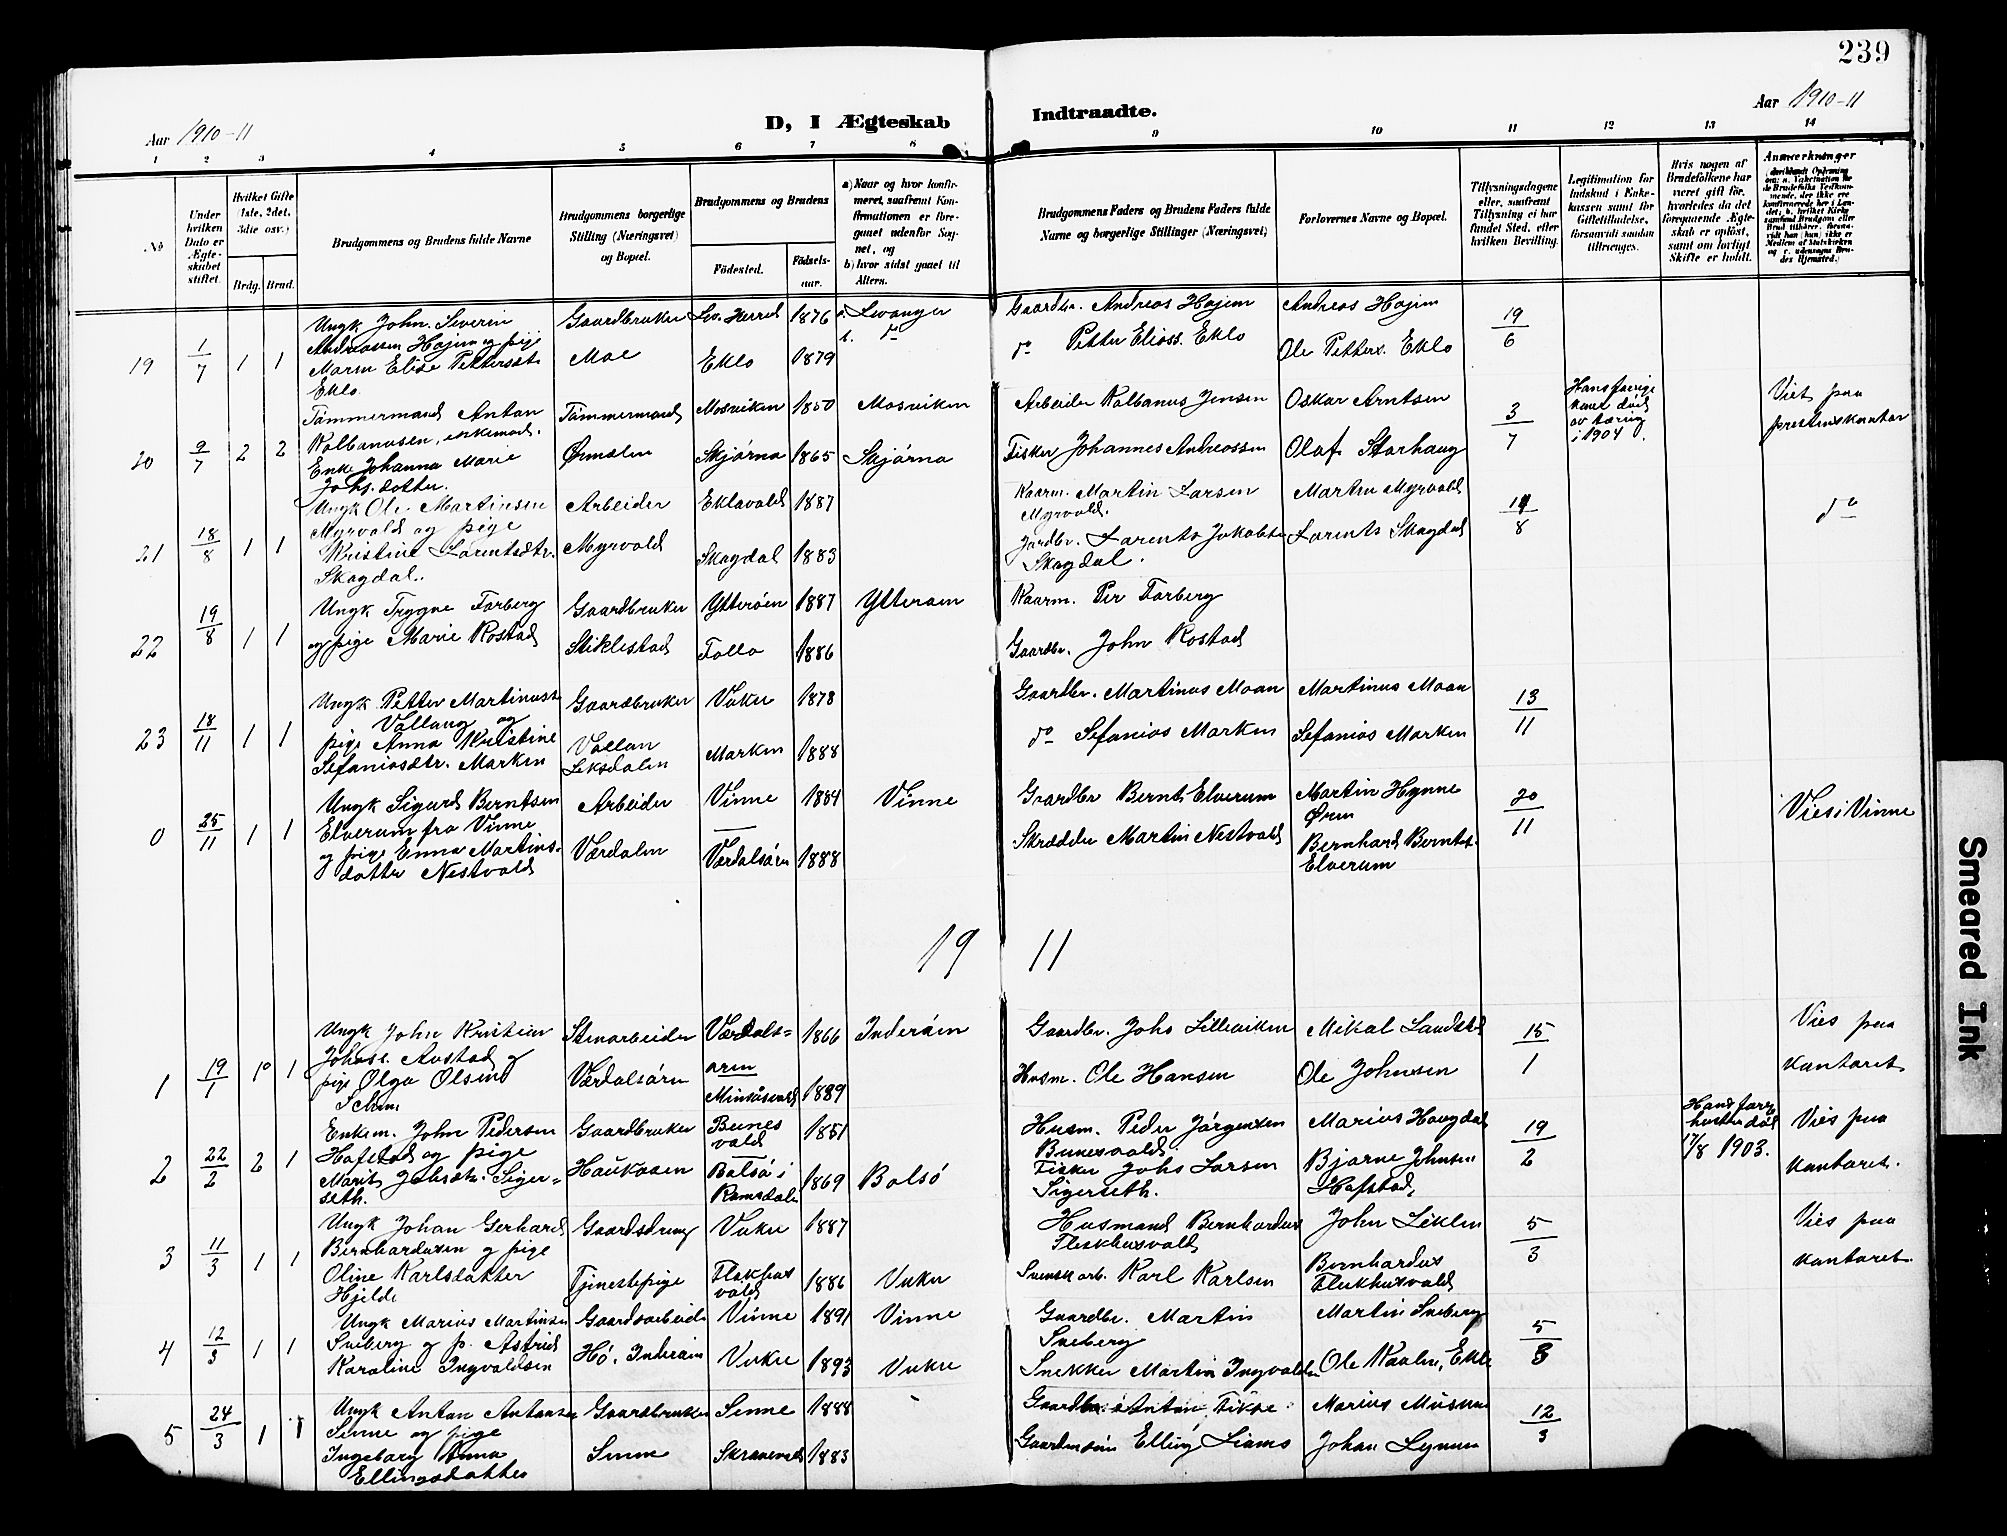 239
Aar 1910-11
D, I Ægteskab
Indtraadte.
Aar 1910-11
1 2 3 4 5 6 7 8 9 10 11 12 13 14
No
Under hvilken Dato er Ægteskabet stiftet.
Hvilket Gifte (1ste, 2det, 3die osv.)
Brdg. Brud.
Brudgommens og Brudens fulde Navne
Brudgommens borgerlige Stilling (Næringsvei) og Bopæl.
Brudgommens og Brudens
Fødested.
Fødselsaar.
a) Naar og hvor konfirmeret, saafremt Konfirmationen er foregaaet udenfor Sognet, og
b) hvor sidst gaaet til Alters.
Brudgommens Faders og Brudens Faders fulde Navne og borgerlige Stillinger (Næringsvei)
Forlovernes Navne og Bopæl.
Tillysningsdagene eller, saafremt Tillysning ei har fundet Sted, efter hvilken Bevilling.
Legitimation for Indskud i Enkekassen samt for Giftetilladelse, forsaavidt saadan tiltrænges.
Hvis nogen af Brudefolkene har været gift før, hvorledes da det foregaaende Ægteskab er opløst, samt om lovligt Skifte er holdt.
Anmærkninger
19 1/7 1 1
Ungk John Severin
Andreassen Hojem og pige
Maren Elise Pettersdt.
Eklo
Gaardbruker
Moe
Lev. Herred 1876
Eklo 1879
a. Levanger
b. do
Gaardbr. Andreas Hojem
do Petter Eliass. Eklo
Andreas Hojem
Ole Petters. Eklo
19/6
20 9/7 2 2
Tømmermand Anton
Kolbanusen, enkemand.
Enke Johanna Marie
Johs.dotter.
Tømmermand
Ørmelen
Mosviken 1850
Skjørna 1865
Mosviken
Skjørna
Arbeider Kolbanus Jensen
Fisker Johannes Andreassen
Oskar Arntsen
Olaf Storhaug
3/7
Hans forrige
kone død
av tæring
i 1904.
Viet paa
prestens kontor
21 18/8 1 1
Ungk Ole Martinsen
Myrvold og pige
Kristine Larentsdtr.
Skogdal.
Arbeider
Myrvold
Eklovald 1887
Skogdal 1883
Kaarm. Martin Larsen
Myrvold.
Jordbr. Larents Jakobs
Skogdal.
Martin Myrvold
Larents Skogdal
14/8
do
22 19/8 1 1
Ungk Trygve Forberg
og pige Marie Rostad
Gaardbruker
Stiklestad
Ytterøen 1887
Follo 1886
Ytterøen
Kaarm. Per Forberg
Gaardbr. John Rostad
23 18/11 1 1
Ungk Petter Martinus
Vollang og
pige Anna Kristine
Sefaniasdtr. Marken
Gaardbruker
Vollan
Leksdalen
Vuku 1878
Marken 1888
Gaardbr. Martinus Moan
do Sefanias Marken
Martinus Moan
Sefanias Marken
13/11
0 25/11 1 1
Ungk Sigurd Berntsen
Elverum fra Vinne
og pige Emma Martins-
dotter Nestvold
Arbeider
Værdalen
Vinne 1884
Værdalsøren 1888
Vinne
Gaardbr Bernt Elverum
Skrædder Martin Nestvold
Martin Hynne
Øren
Bernhard Bernts.
Elverum
20/11
Vies i Vinne
1911
1 19/1 1 1
Ungk John Kristian
Johnse. Austad og
pige Olga Olsen
Stenarbeider
Værdalsøren
Værdals=
øren 1866
1889
Inderøen
Gaardbr. Johs Lilleviken
Husm. Ole Hansen
Mikal Landstad
Ole Johnsen
15/1
Vies paa
kontoret
2 22/2 2 1
Enkem. John Pedersen
Hofstad og pige
Marit Johsdtr. Siger=
seth.
Gaardbruker
Haukåsen
Bunes
vald 1851
Bolsø i
Romsdalen 1869
Bolsø
Husm. Peder Jørgensen
Bunesvald.
Fisker Johs Larsen
Sigerseth.
Marius Haugdal
Bjarne Johnsen
Hofstad,
19/2
Hans forr.
hustru død
17/8 1903.
Vies paa
kontoret.
3 11/3 1 1
Ungk Johan Gerhard
Bernhardusen og pige
Oline Karlsdotter
Hjelde
Gaardsdreng
Tjenestepige
Vuku 1887
Fleskhus
vald 1886
Vuku
Husmand Bernhardus
Fleskhusvald
Svensk arb. Karl Karlsen
John Leklem
Bernhardus
Fleskhusvald
5/3
Vies paa
kontoret.
4 12/3 1 1
Ungk Marius Martinsen
Sneberg og p. Astrid
Karoline Ingvaldsen
Gaardsarbeider
Hø. Inderøen
Vinne 1891
Vuku 1893
Vinne
Vuku
Gaardbr. Martin
Sneberg
Snekker Martin Ingvaldsen
Martin Sneberg
Ole Kaalen, Eklo
5/3
5 24/3 1 1
Ungk Anton Antonsen
Sinne og pige
Ingeborg Anna
Ellingsdatter
Gaardbruker
Sinne
Sinne 1888
1883
Gaardbr. Anton Fikse
Elling
Marius Musum
Johan Lynum
12/3
Smeared Ink